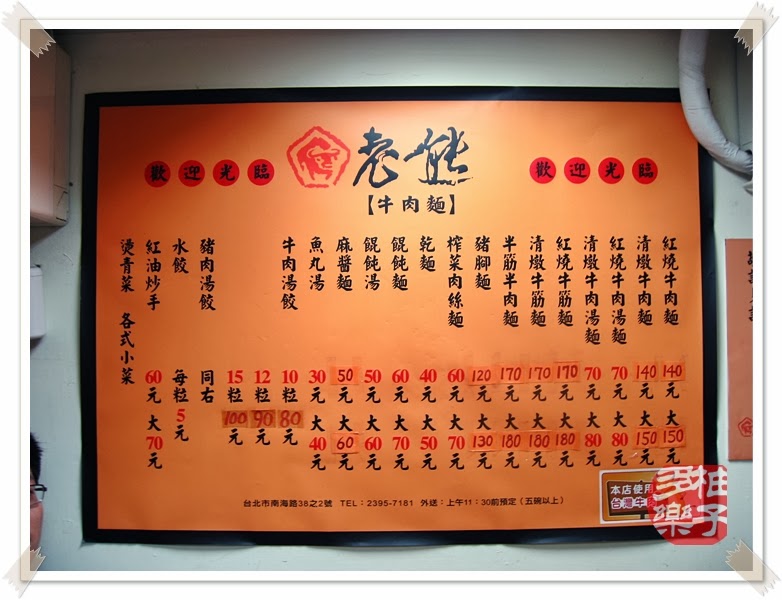 歡迎光臨
老熊
【牛肉麵】
歡迎光臨
紅燒牛肉麵 140元 大150元
清燉牛肉麵 140元 大150元
紅燒牛肉湯麵 70元 大80元
清燉牛肉湯麵 70元 大80元
紅燒牛筋麵 170元 大180元
清燉牛筋麵 170元 大180元
半筋半肉麵 170元 大180元
豬腳麵 120元 大130元
榨菜肉絲麵 60元 大70元
乾麵 40元 大50元
餛飩麵 60元 大70元
餛飩湯 50元 大60元
麻醬麵 50元 大60元
魚丸湯 30元 大40元
牛肉湯餃 10粒80元
12粒90元
15粒100元
豬肉湯餃 同右
水餃 每粒5元
紅油炒手 60元 大70元
燙青菜 各式小菜
台北市南海路38之2號 TEL：2395-7181 外送：上午11：30前預定（五碗以上）
本店使用
台灣牛
柚子多樂